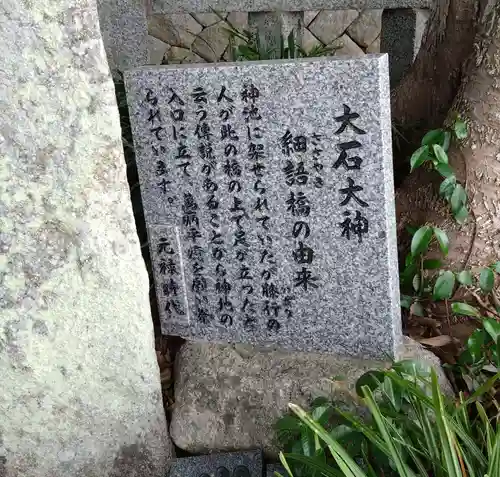 大石大神
ささやき
細語橋の由来
いざり
神池に架せられていたが膝行の
人が此の橋の上で足が立ったと
云う伝説があることから神池の
入口に立て、萬病平癒を願い祭
られています。
元禄時代